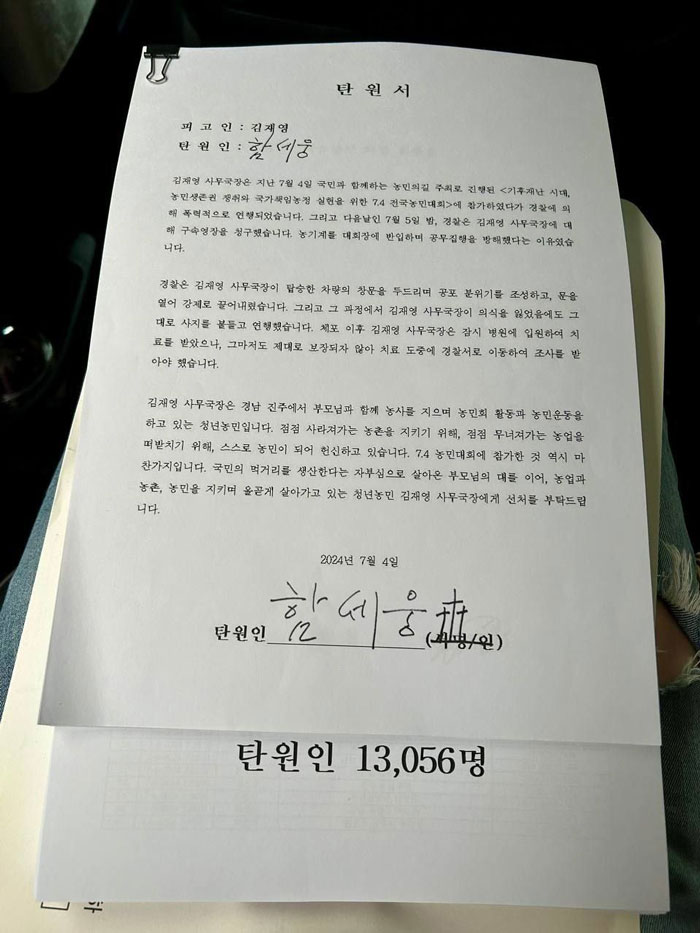 탄 원 서
피 고 인 : 김재영
탄 원 인 : 함세웅
김재영 사무국장은 지난 7월 4일 국민과 함께하는 농민의길 주최로 진행된 <기후재난 시대,
농민생존권 쟁취와 국가책임농정 실현을 위한 7.4 전국농민대회>에 참가하였다가 경찰에 의
해 폭력적으로 연행되었습니다. 그리고 다음날인 7월 5일 밤, 경찰은 김재영 사무국장에 대
해 구속영장을 청구했습니다. 농기계를 대회장에 반입하며 공무집행을 방해했다는 이유였습
니다.
경찰은 김재영 사무국장이 탑승한 차량의 창문을 두드리며 공포 분위기를 조성하고, 문을
열어 강제로 끌어내렸습니다. 그리고 그 과정에서 김재영 사무국장이 의식을 잃었음에도 그
대로 사지를 붙들고 연행했습니다. 체포 이후 김재영 사무국장은 잠시 병원에 입원하여 치
료를 받았으나, 그마저도 제대로 보장되자 않아 치료 도중에 경찰서로 이동하여 조사를 받
아야 했습니다.
김재영 사무국장은 경남 진주에서 부모님과 함께 농사를 지으며 농민회 활동과 농민운동을
하고 있는 청년농민입니다. 점점 사라져가는 농촌을 지키기 위해, 점점 무너져가는 농업을
떠받치기 위해, 스스로 농민이 되어 헌신하고 있습니다. 7.4 농민대회에 참가한 것 역시 마
찬가지입니다. 국민의 먹거리를 생산한다는 자부심으로 살아온 부모님의 대를 이어, 농업과
농촌, 농민을 지키며 올곧게 살아가고 있는 청년농민 김재영 사무국장에게 선처를 부탁드립
니다.
2024년 7월 4일
탄원인 함세웅 (서명/인)
탄원인 13,056명